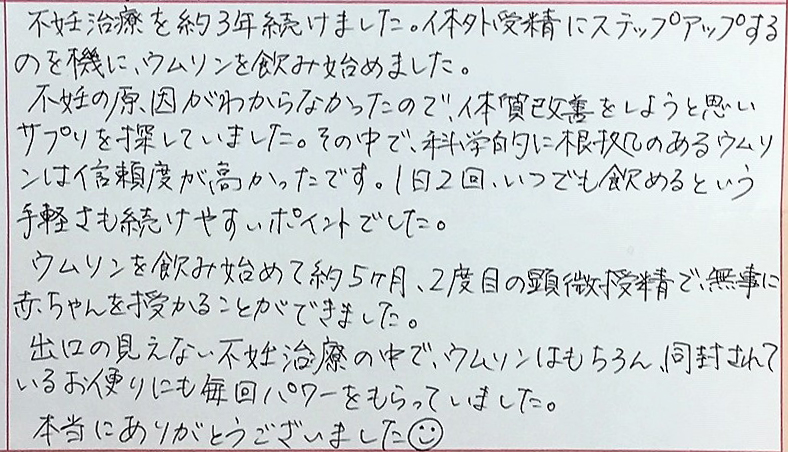 不妊治療を約3年続けました。体外受精にステップアップする
のを機に、ウムリンを飲み始めました。
不妊の原因がわからなかったので、体質改善をしようと思い
サプリを探していました。その中で、科学的に根拠のあるウムリ
ンは信頼度が高かったです。1日2回、いつでも飲めるという
手軽さも続けやすいポイントでした。
ウムリンを飲み始めて約5ヶ月、2度目の顕微授精で、無事に
赤ちゃんを授かることができました。
出口の見えない不妊治療の中で、ウムリンはもちろん、同封されて
いるお便りにも毎回パワーをもらっていました。
本当にありがとうございました☺